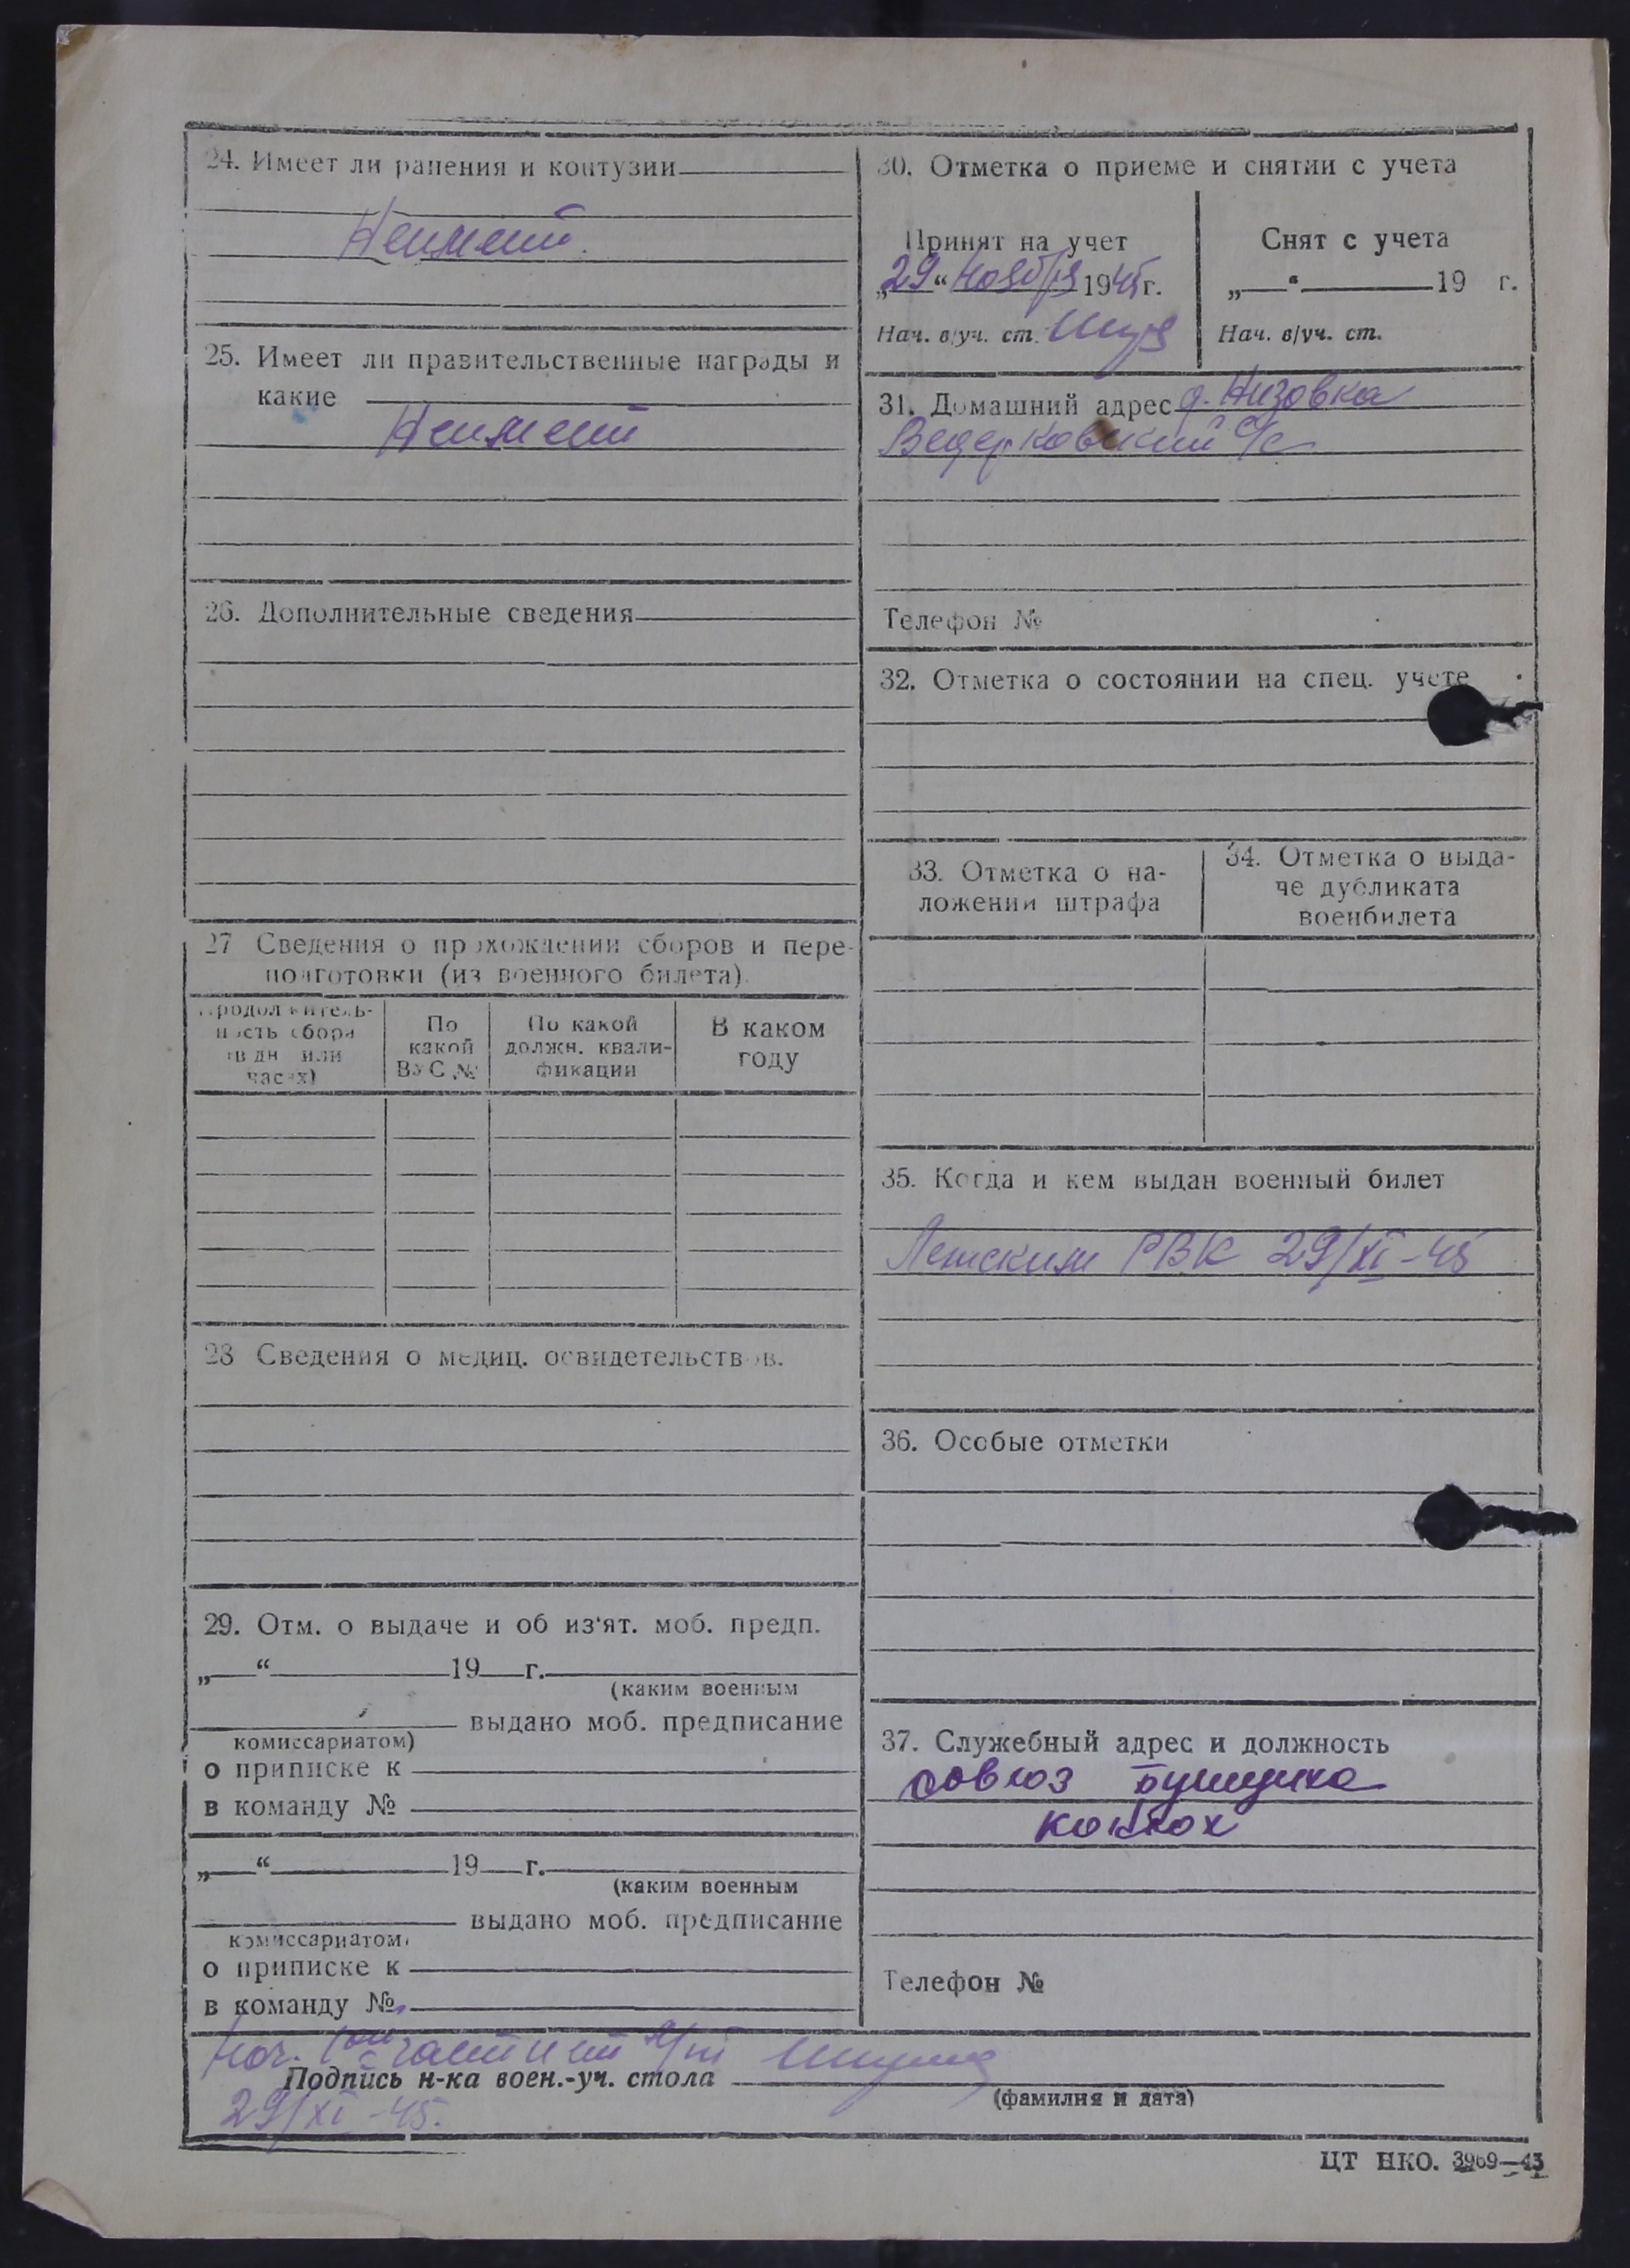 24. Имеет ли ранения и контузии
Неимеет.
25. Имеет ли правительственные награды и
какие
Неимеет
26. Дополнительные сведения
27 Сведения о прохождении сборов и пере-
подготовки (из военного билета).
Продолжитель-
ность сбора
(в дн или
часах)
По
какой
ВУС №
По какой
должн. квали-
фикации
В каком
году
28 Сведения о медиц. освидетельств в.
29. Отм. о выдаче и об из'ят. моб. предп.
„ “ 19 г.
(каким военным
выдано моб. предписание
комиссариатом)
о приписке к
в команду №
„ “ 19 г.
(каким военным
выдано моб. предписание
комиссариатом)
о приписке к
в команду №
30. Отметка о приеме и снятии с учета
Принят на учет
„29“ ноября 1945 г.
Нач. в/уч. ст.
Снят с учета
„ “ 19 г.
Нач. в/уч. ст.
31. Домашний адрес д. Низовка
Ведерковский с/с
Телефон №
32. Отметка о состоянии на спец. учете
33. Отметка о на-
ложении штрафа
34. Отметка о выда-
че дубликата
военбилета
35. Когда и кем выдан военный билет
РВК 29/XI-45
36. Особые отметки
37. Служебный адрес и должность
Телефон №
Нач. части
Подпись н-ка воен.-уч. стола
(фамилия и дата)
29/XI-45.
ЦТ НКО. 3969—43